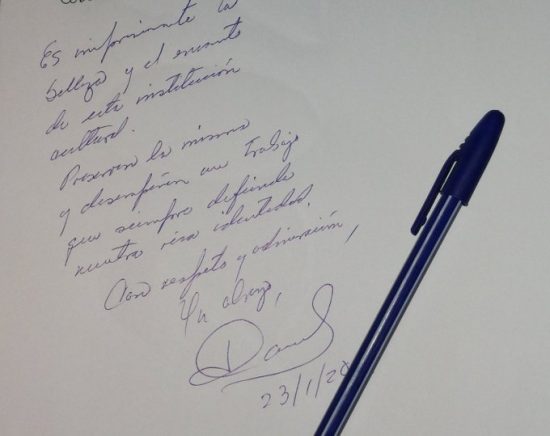 Es impresionante la
belleza y el encanto
de esta institución
cultural.
Preserven la misma
y desempeñen un trabajo
que siempre defienda
nuestra rica identidad.
Con respeto y admiración,
Un abrazo,
23/1/20